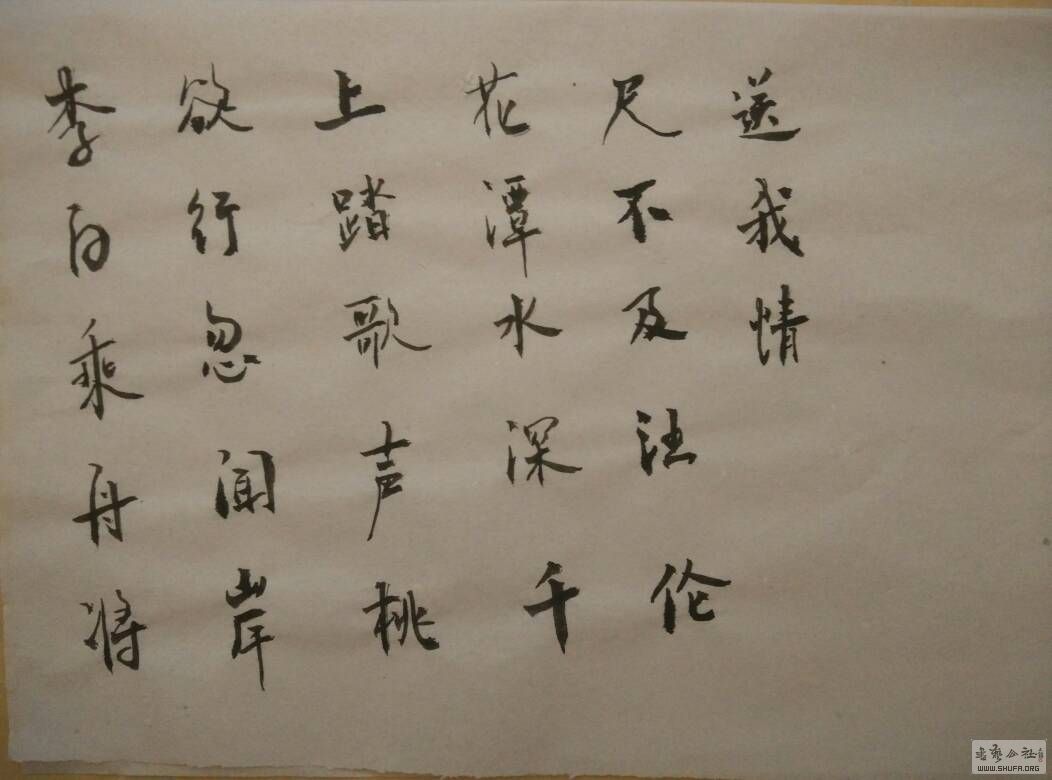 李白乘舟将
欲行忽闻岸
上踏歌声桃
花潭水深千
尺不及汪伦
送我情
书艺公社
WWW.SHUFA.ORG